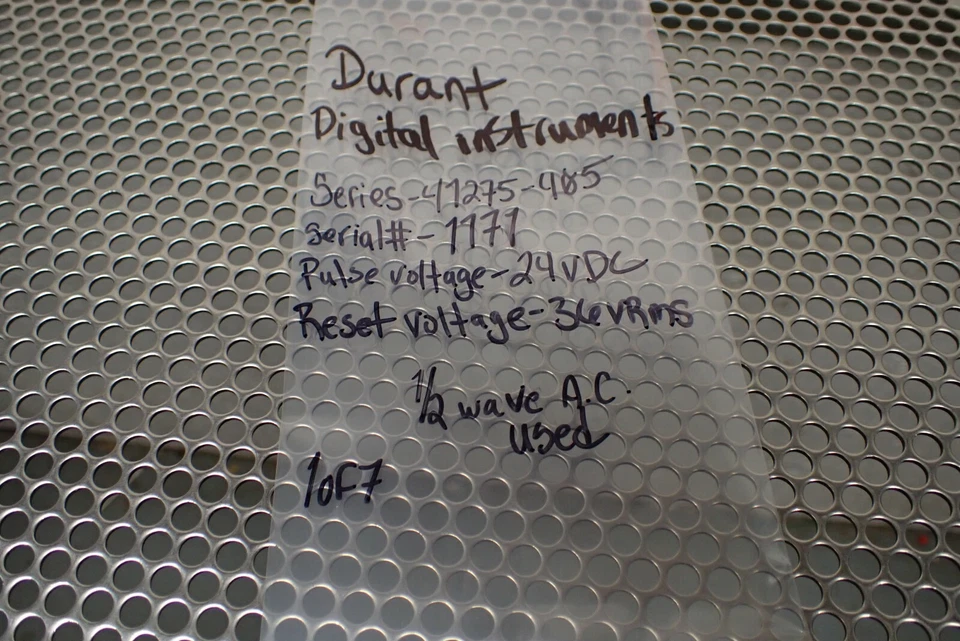 Durant
Digital instruments
Series-41275-405
Serial#-1177
Pulse voltage-24vDC
Reset voltage-36vRms
1/2 wave A.C.
used
1oF7